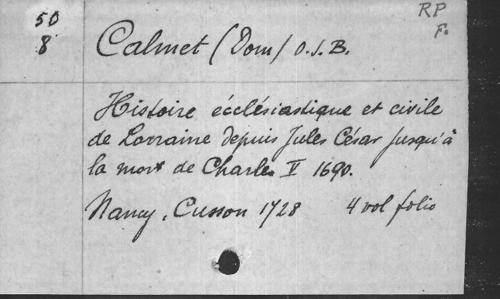 50 RP
8 F.
Calmet (Dom) O.S.B.
Histoire écclésiastique et civile
de Lorraine depuis Jules César jusqu'à
la mort de Charles V 1690.
Nancy, Cusson 1728 4 vol folio